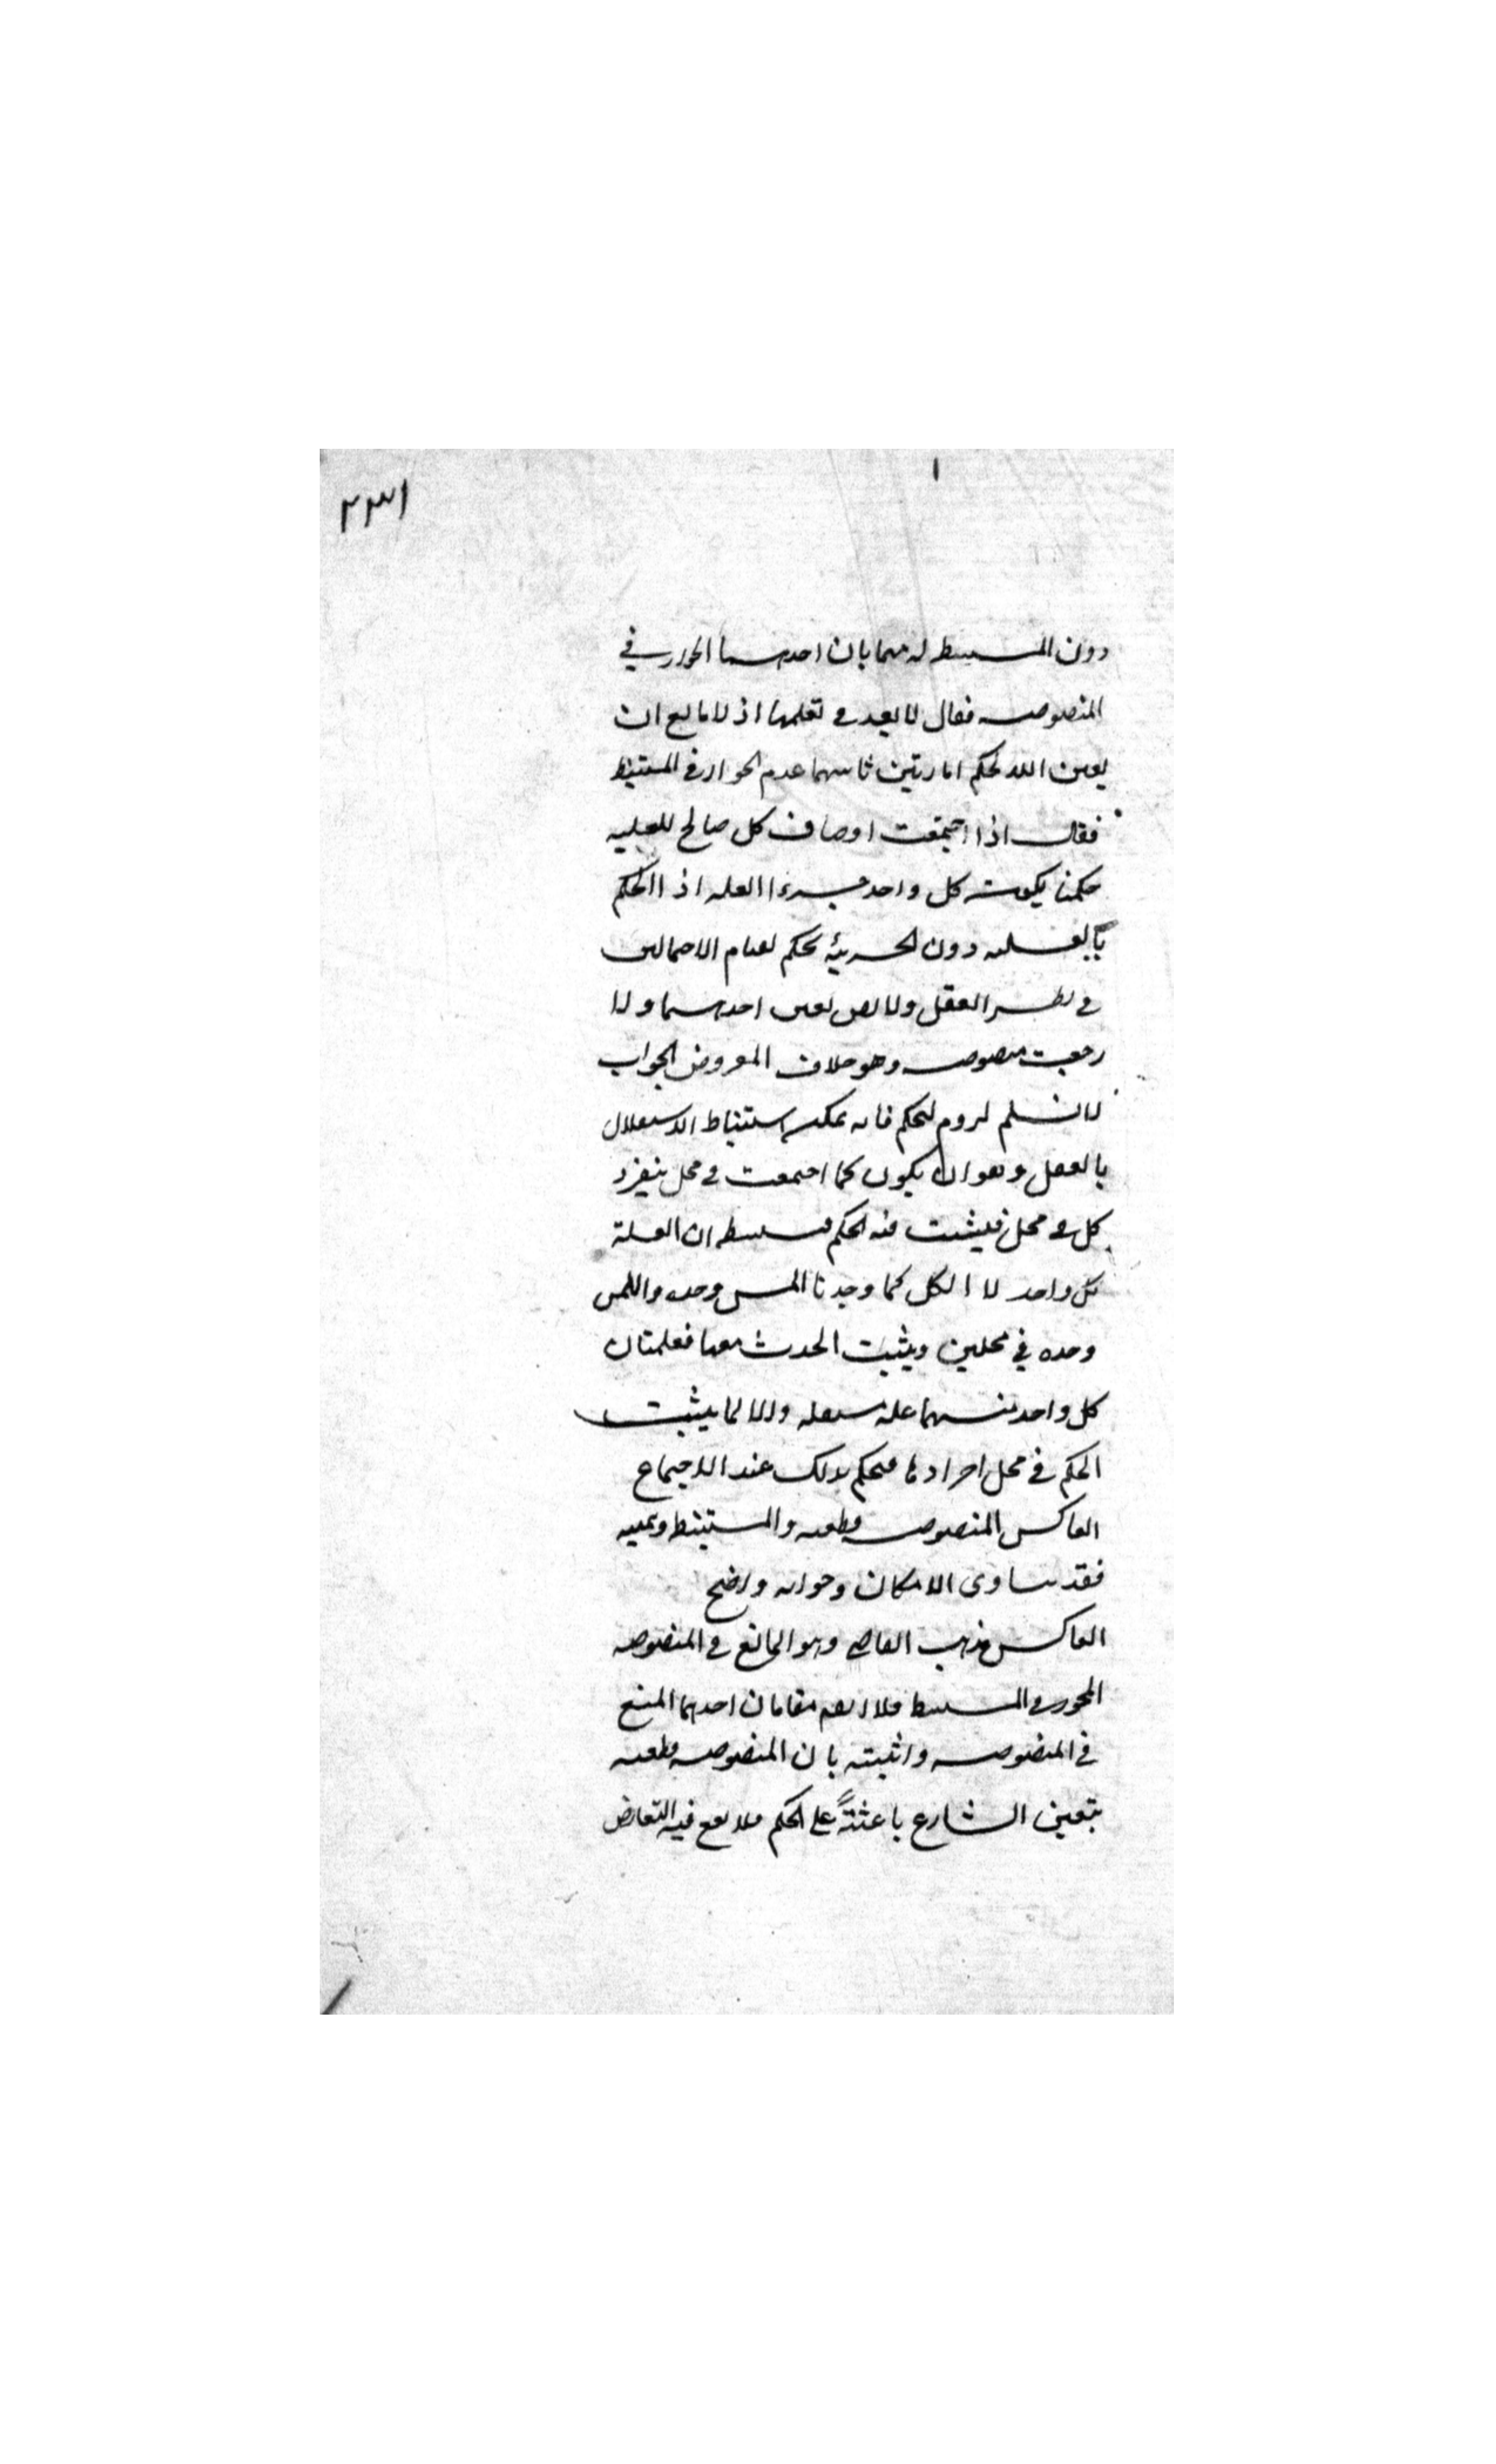 ٢٣١
دون المستنبطة له مقامان احدهما الجواز في
المنصوصه فقال لا بعد في تعلمها اذ لا مانع ان
يعين الله لحكم امارتين ثانيهما عدم الجواز في المستنبط
فقال اذا اجتمعت اوصاف كل صالح للعليه
حكمنا بكون كل واحد جزءا العله اذ الحكم
بالعليه دون الجزئية تحكم لقيام الاحتمالين
في نظر العقل ولا نص يعين احدهما والا
رجعت منصوصه وهو خلاف المفروض الجواب
لا نسلم لزوم التحكم فانه يمكن استنباط الاستقلال
بالعقل وهو ان يكون كما اجتمعت في محل ينفرد
كل في محل فيثبت فيه الحكم فيستنبط ان العلة
كل واحد لا الكل كما وجدنا المس وحده واللمس
وحده في محلين ويثبت الحدث معها فعلمنا ان
كل واحد منهما علة مستقله والا لما يثبت
الحكم في محل افرادها فيحكم بذلك عند الاجتماع
العاكس المنصوصه قطعيه والمستنبط وهميه
فقد يساوي الامكان وجوابه واضح
العاكس مذهب القاضي وهو المانع في المنصوصه
المجوز في المستنبطه فلا مقامان احدهما المنع
في المنصوصه واثبته بان المنصوصه قطعيه
بتعين الشارع باعثةً على الحكم فلا يقع فيه التعارض